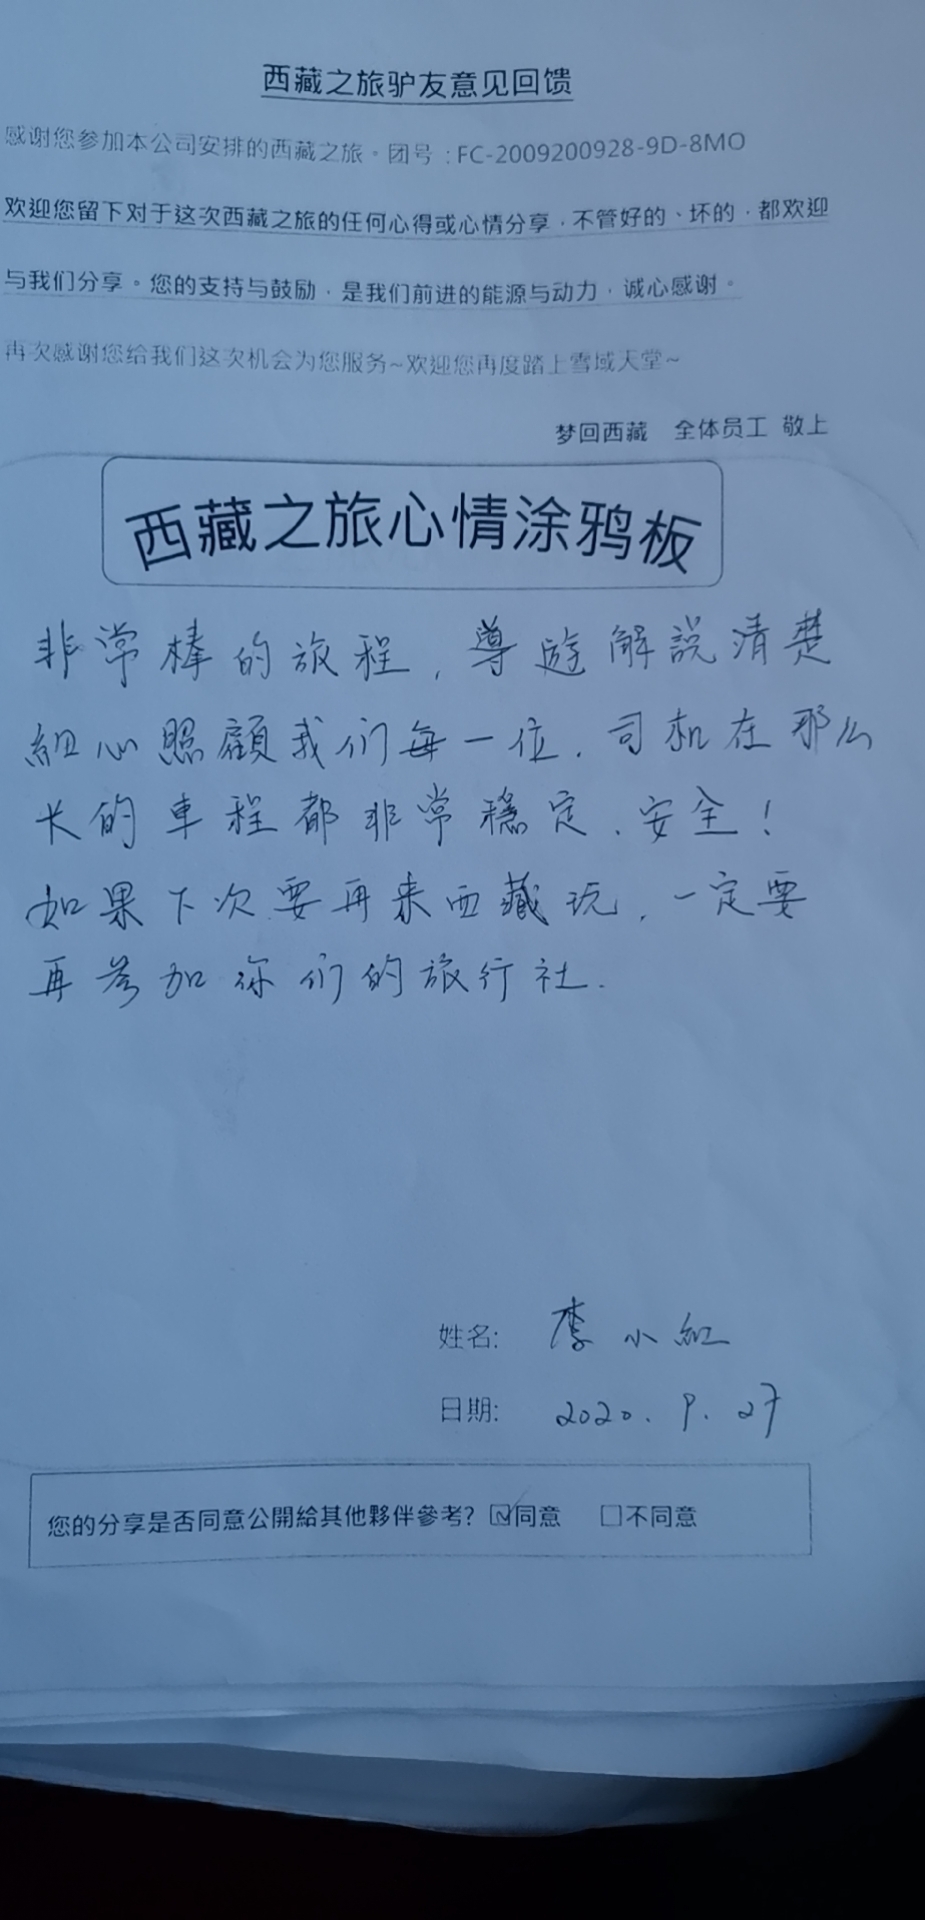 西藏之旅驴友意见回馈
感谢您参加本公司安排的西藏之旅。团号：FC-2009200928-9D-8MO
欢迎您留下对于这次西藏之旅的任何心得或心情分享，不管好的、坏的，都欢迎
与我们分享。您的支持与鼓励，是我们前进的能源与动力，诚心感谢。
再次感谢您给我们这次机会为您服务~欢迎您再度踏上雪域天堂~
梦回西藏 全体员工 敬上
西藏之旅心情涂鸦板
非常棒的旅程，導遊解說清楚
細心照顧我们每一位．司机在那么
长的車程都非常穩定、安全！
如果下次要再来西藏玩，一定要
再参加你们的旅行社．
姓名: 李小紅
日期: 2020.9.27
您的分享是否同意公開給其他夥伴參考? ☑同意 □不同意